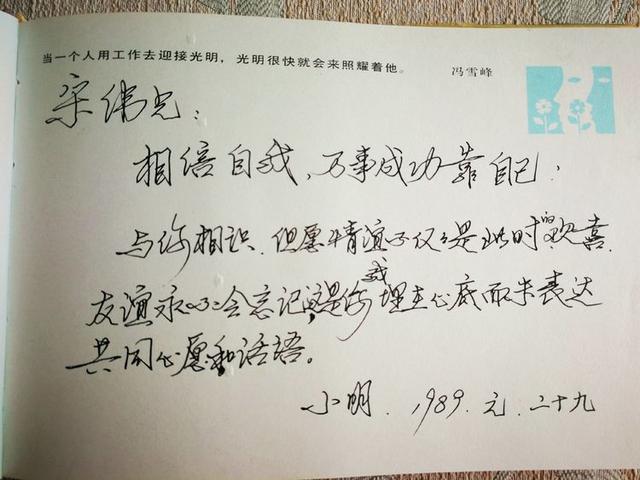 当一个人用工作去迎接光明，光明很快就会来照耀着他。
冯雪峰
宋伟兄：
相信自我，万事成功靠自己！
与你相识，但愿情谊不仅仅是此时的欢喜，
友谊永不会忘记，这是你我埋在心底而未表达
共同心愿和话语。
小明．1989．元．二十九